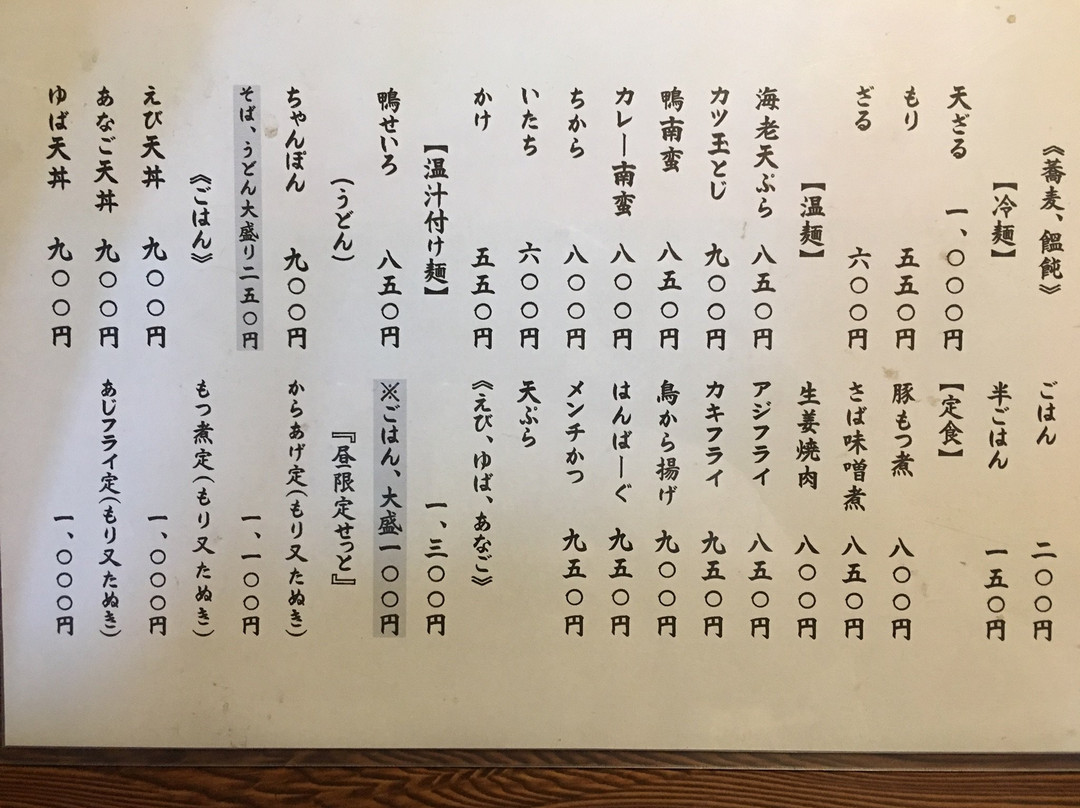 《蕎麦、饂飩》
【冷麺】
天ざる 一、〇〇〇円
もり 五五〇円
ざる 六〇〇円
【温麺】
海老天ぷら 八五〇円
カツ玉とじ 九〇〇円
鴨南蛮 八五〇円
カレー南蛮 八〇〇円
ちから 八〇〇円
いたち 六〇〇円
かけ 五五〇円
【温汁付け麺】
鴨せいろ 八五〇円
(うどん)
ちゃんぽん 九〇〇円
そば、うどん大盛り二五〇円
《ごはん》
えび天丼 九〇〇円
あなご天丼 九〇〇円
ゆば天丼 九〇〇円
ごはん 二〇〇円
半ごはん 一五〇円
【定食】
豚もつ煮 八〇〇円
さば味噌煮 八五〇円
生姜焼肉 八〇〇円
アジフライ 八五〇円
カキフライ 九五〇円
鳥から揚げ 九〇〇円
はんばーぐ 九五〇円
メンチかつ 九五〇円
天ぷら
《えび、ゆば、あなご》
一、三〇〇円
※ごはん、大盛一〇〇円
『昼限定せっと』
からあげ定(もり又たぬき)
一、一〇〇円
もつ煮定(もり又たぬき)
一、〇〇〇円
あじフライ定(もり又たぬき)
一、〇〇〇円